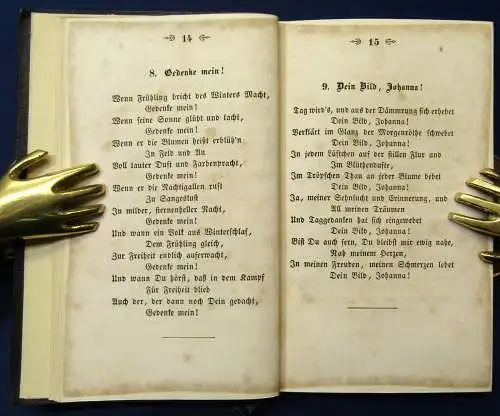 14
8. Gedenke mein!
Wenn Frühling bricht des Winters Macht,
Gedenke mein!
Wenn seine Sonne glüht und lacht,
Gedenke mein!
Wenn er die Blumen heißt erblüh'n
In Feld und Au
Voll lauter Duft und Farbenpracht,
Gedenke mein!
Wenn er die Nachtigallen ruft
Zu Sangeslust
In milder, sternenheller Nacht,
Gedenke mein!
Und wann ein Volk aus Winterschlaf,
Dem Frühling gleich,
Zur Freiheit endlich auferwacht,
Gedenke mein!
Und wann Du hörst, daß in dem Kampf
Für Freiheit blieb
Auch der, der dann noch Dein gedacht,
Gedenke mein!
15
9. Dein Bild, Johanna!
Tag wird's, und aus der Dämmrung sich erhebet
Dein Bild, Johanna!
Verklärt im Glanz der Morgenröthe schwebet
Dein Bild, Johanna!
In jedem Lüftchen auf der stillen Flur und
Im Blüthendufte,
Im Tröpfchen Thau an jeder Blume bebet
Dein Bild, Johanna!
Ja, meiner Sehnsucht und Erinnerung, und
All meinen Träumen
Und Taggedanken hat sich eingewebet
Dein Bild, Johanna!
Bist Du auch fern, Du bleibst mir ewig nahe,
Nah meinem Herzen,
In meinen Freuden, meinen Schmerzen lebet
Dein Bild, Johanna!